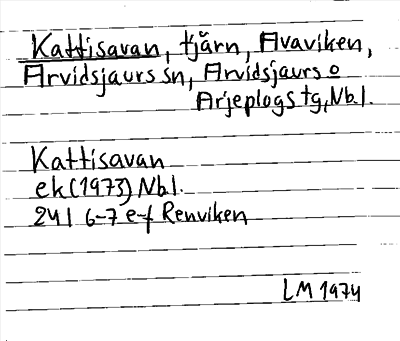 Kattisavan, tjärn, Avaviken,
Arvidsjaurs sn, Arvidsjaurs o
Arjeplogs tg, Nb.l.
Kattisavan
ek (1973) Nbl.
24 I 6-7 e-f Renviken
LM 1974